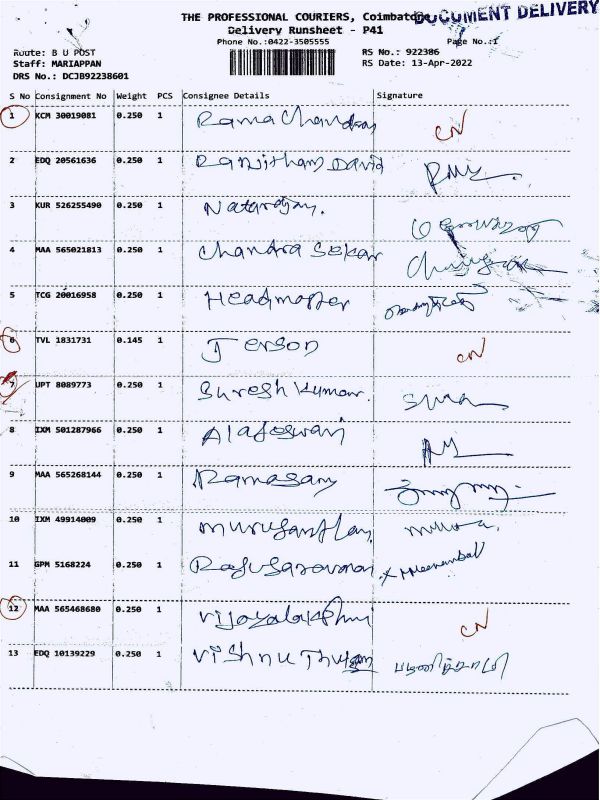 THE PROFESSIONAL COURIERS, Coimbatore
DOCUMENT DELIVERY
Delivery Runsheet - P41
Phone No.:0422-3505555
Page No.:1
Route: B U POST
RS No.: 922386
Staff: MARIAPPAN
RS Date: 13-Apr-2022
DRS No.: DCJB92238601
S No Consignment No Weight PCS Consignee Details Signature
1 KCM 30019081 0.250 1 Rama Chandran CN
2 EDQ 20561636 0.250 1 Ranjitham David
3 KUR 526255490 0.250 1 Natarajan.
4 MAA 565021813 0.250 1 Chandra Sekar
5 TCG 20016958 0.250 1 Headmaster
6 TVL 1831731 0.145 1 Jerson CN
7 UPT 8089773 0.250 1 Suresh Kumar.
8 IXM 501287966 0.250 1
9 MAA 565268144 0.250 1 Ramasamy
10 IXM 49914009 0.250 1
11 GPM 5168224 0.250 1
12 MAA 565468680 0.250 1 Vijayalakshmi CN
13 EDQ 10139229 0.250 1 Vishnu